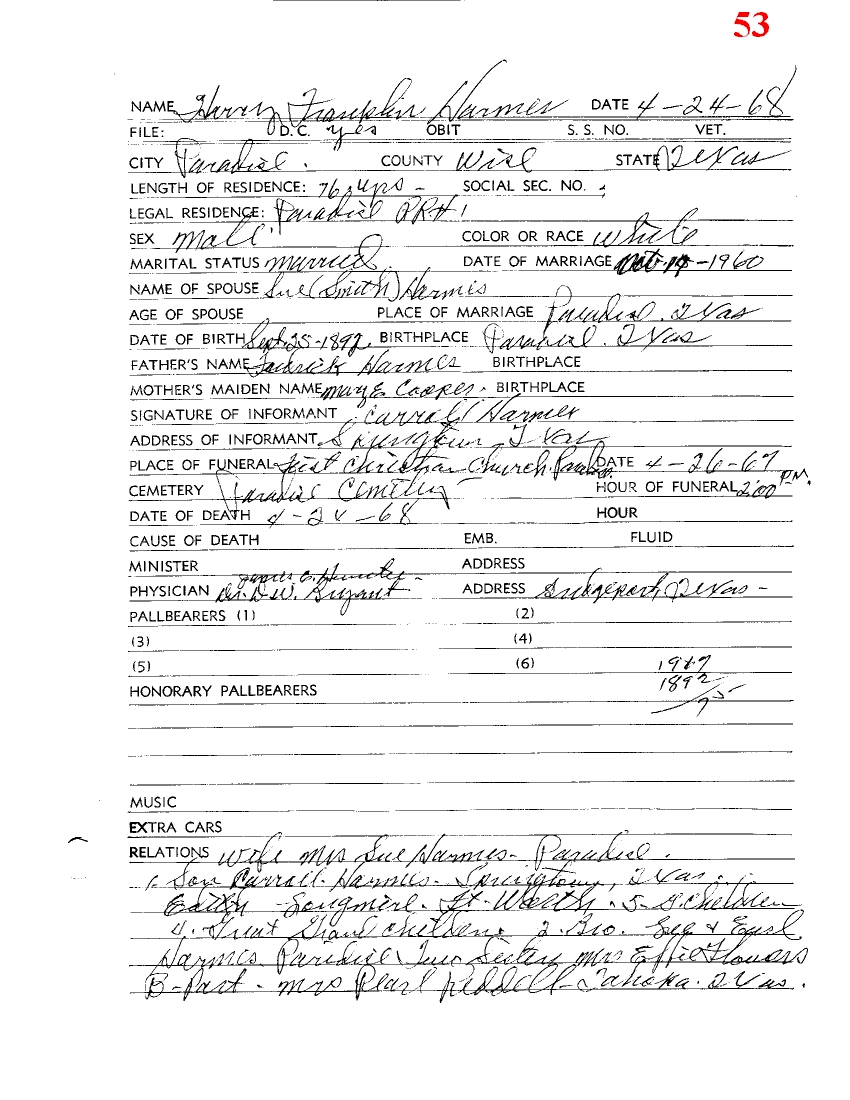 53
NAME Harry Franklin Harmes DATE 4-24-68
FILE: D.C. yes OBIT S. S. NO. VET.
CITY Paradise. COUNTY Wise STATE Texas
LENGTH OF RESIDENCE: 76 yrs - SOCIAL SEC. NO.
LEGAL RESIDENCE: Paradise RR#1
SEX Male COLOR OR RACE white
MARITAL STATUS married DATE OF MARRIAGE 14-1960
NAME OF SPOUSE Sue (Smith) Harmes
AGE OF SPOUSE PLACE OF MARRIAGE Paradise. Texas
DATE OF BIRTH Sept. 25-1892. BIRTHPLACE Paradise. Texas
FATHER'S NAME Fredrick Harmes BIRTHPLACE
MOTHER'S MAIDEN NAME Mary E Cooper. BIRTHPLACE
SIGNATURE OF INFORMANT Carroll Harmes
ADDRESS OF INFORMANT Springtown, Texas
PLACE OF FUNERAL First Christian Church. DATE 4-26-67
CEMETERY Paradise Cemetery HOUR OF FUNERAL 2:00 P.M.
DATE OF DEATH 4-24-68 HOUR
CAUSE OF DEATH EMB. FLUID
MINISTER James ADDRESS
PHYSICIAN Dr. D.W. Bryant ADDRESS Bridgeport, Texas -
PALLBEARERS (1) (2)
(3) (4)
(5) (6) 1967
1892
75
HONORARY PALLBEARERS
MUSIC
EXTRA CARS
RELATIONS wife Mrs Sue Harmes - Paradise.
1. Son Carroll Harmes - Springtown, Texas.
Songmire. Ft. Worth. 5 G. Children
4. Great Grand Children. 2. Bro. & Earl
Harmes Paradise Two Sisters Mrs Effie Flowers
B-Port - Mrs Pearl Reddell - Tahoka. Texas.